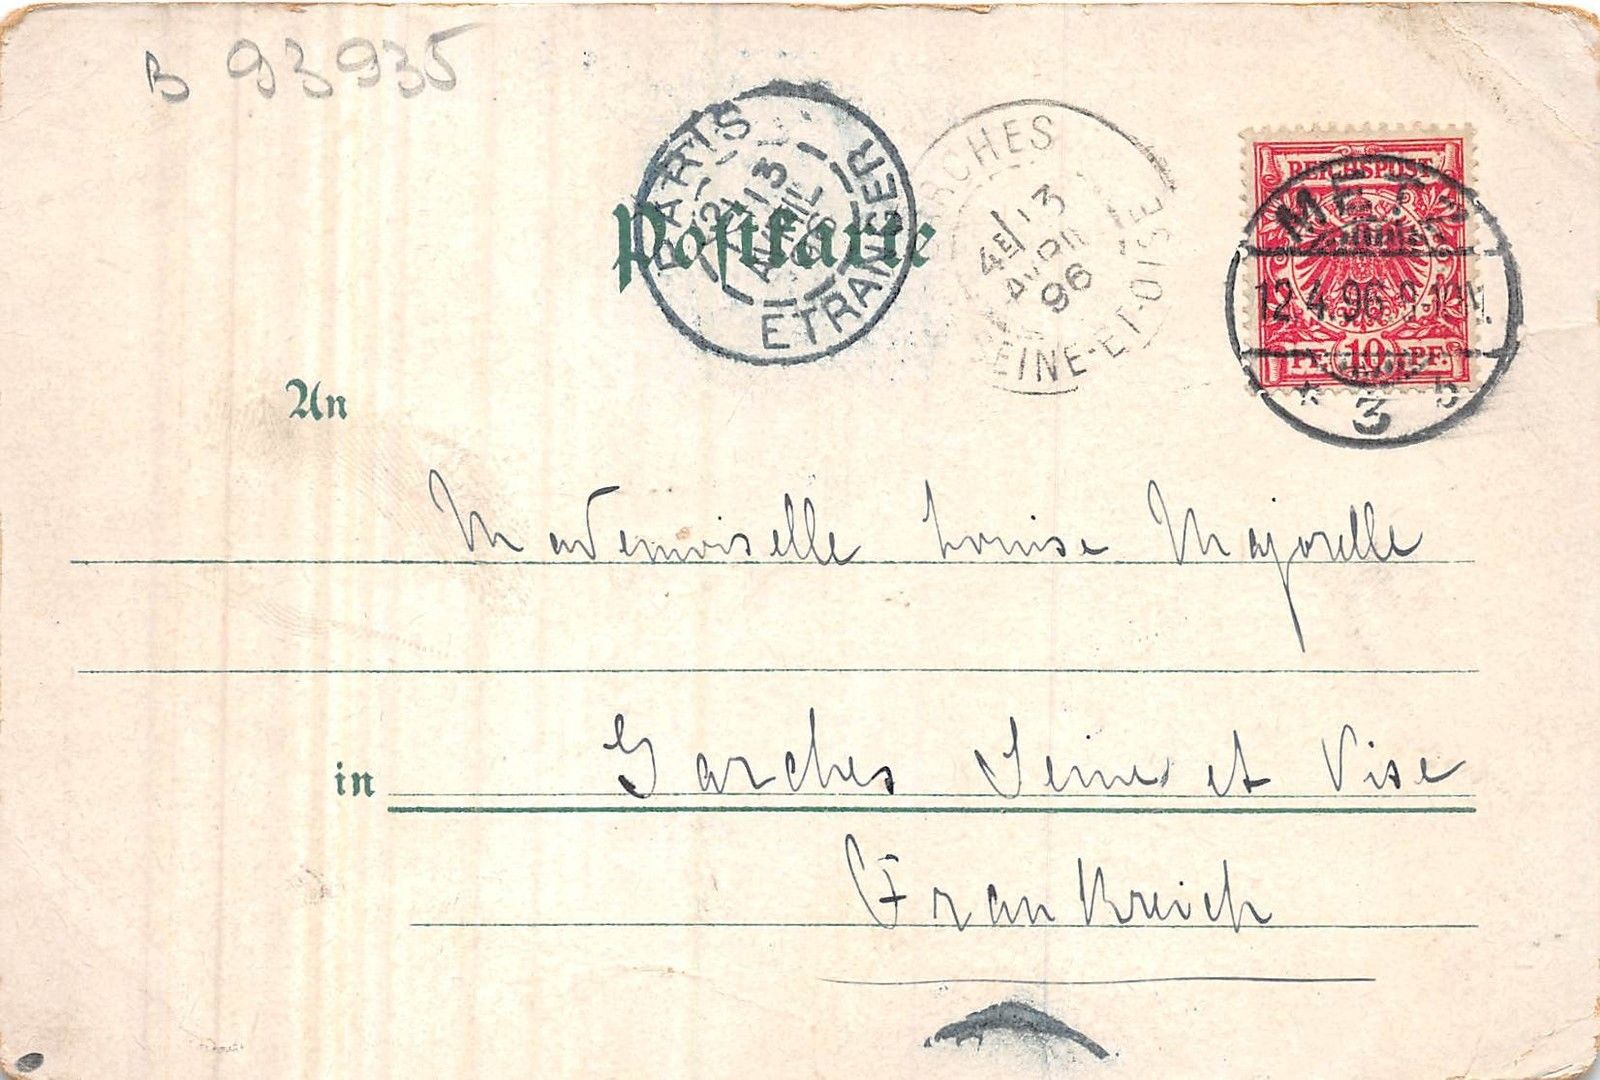 B 93935
Postkarte
PARIS ETRANGER
13
AVRIL
96
GARCHES
4E/13
AVRIL
96
SEINE-ET-OISE
REICHSPOST
PF. 10 PF.
METZ
12.4.96. 9-12N.
* 3 b
An
Mademoiselle Louise Majorelle
in
Garches Seine et Oise
Frankreich